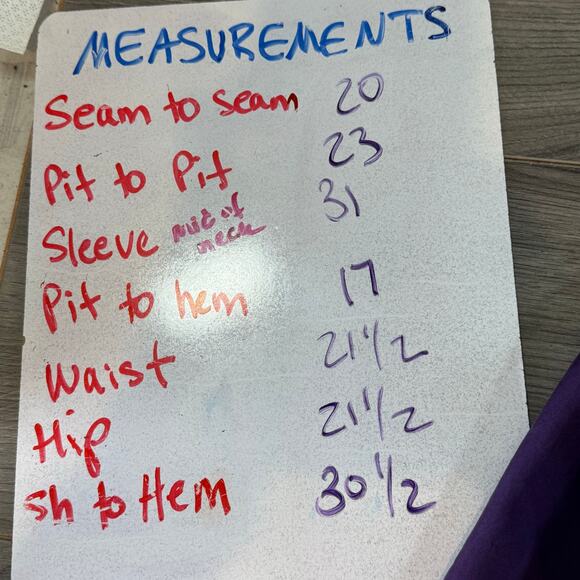 MEASUREMENTS
Seam to seam 20
Pit to Pit 23
Sleeve mid of neck 31
Pit to hem 17
Waist 21 1/2
Hip 21 1/2
sh to Hem 30 1/2